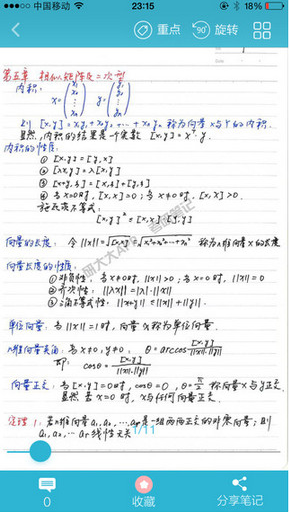 中国移动 23:15 18%
重点 90° 旋转
第五章 相似矩阵及二次型
内积: x=(x₁ x₂ ⋮ xₙ) y=(y₁ y₂ ⋮ yₙ)
则 [x,y]=x₁y₁+x₂y₂+…+xₙyₙ 称为向量x与y的内积.
显然,内积的结果是一个实数 [x,y]=xᵀy.
内积的性质:
① [x,y]=[y,x]
② [λx,y]=λ[x,y]
③ [x+y,z]=[x,z]+[y,z]
④ 当x=0时,[x,x]=0;当x≠0时,[x,x]>0.
[x,y]²≤[x,x][y,y]
向量的长度: 令||x||=√[x,x]=√x₁²+x₂²+…+xₙ² 称为n维向量x的长度
向量长度的性质:
①非负性:当x≠0时,||x||>0;当x=0时,||x||=0
②齐次性:||λx||=|λ|·||x||
③三角不等式性:||x+y||≤||x||+||y||.
单位向量: 当||x||=1时,向量x称为单位向量.
n维向量夹角: 当x≠0,y≠0, θ=arccos [x,y]/||x||·||y||
即: cosθ=[x,y]/||x||·||y||
向量正交: 当[x,y]=0时,cosθ=0,θ=π/2 称向量x与y正交.
显然 若x=0时,x与任何向量正交.
定理1:若n维向量a₁,a₂,…,aᵣ是一组两两正交的非零向量;则
a₁,a₂,…aᵣ线性无关
1/11
0 收藏 分享笔记